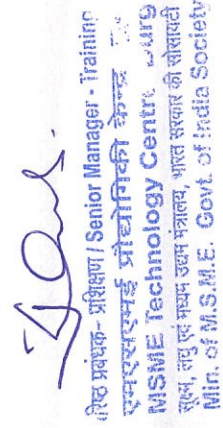 वरिष्ठ प्रबंधक- प्रशिक्षण / Senior Manager - Training
एमएसएमई प्रौद्योगिकी केन्द्र
MSME Technology Centre
सूक्ष्म, लघु एवं मध्यम उद्यम मंत्रालय, भारत सरकार की सोसायटी
Min. of M.S.M.E. Govt. of India Society